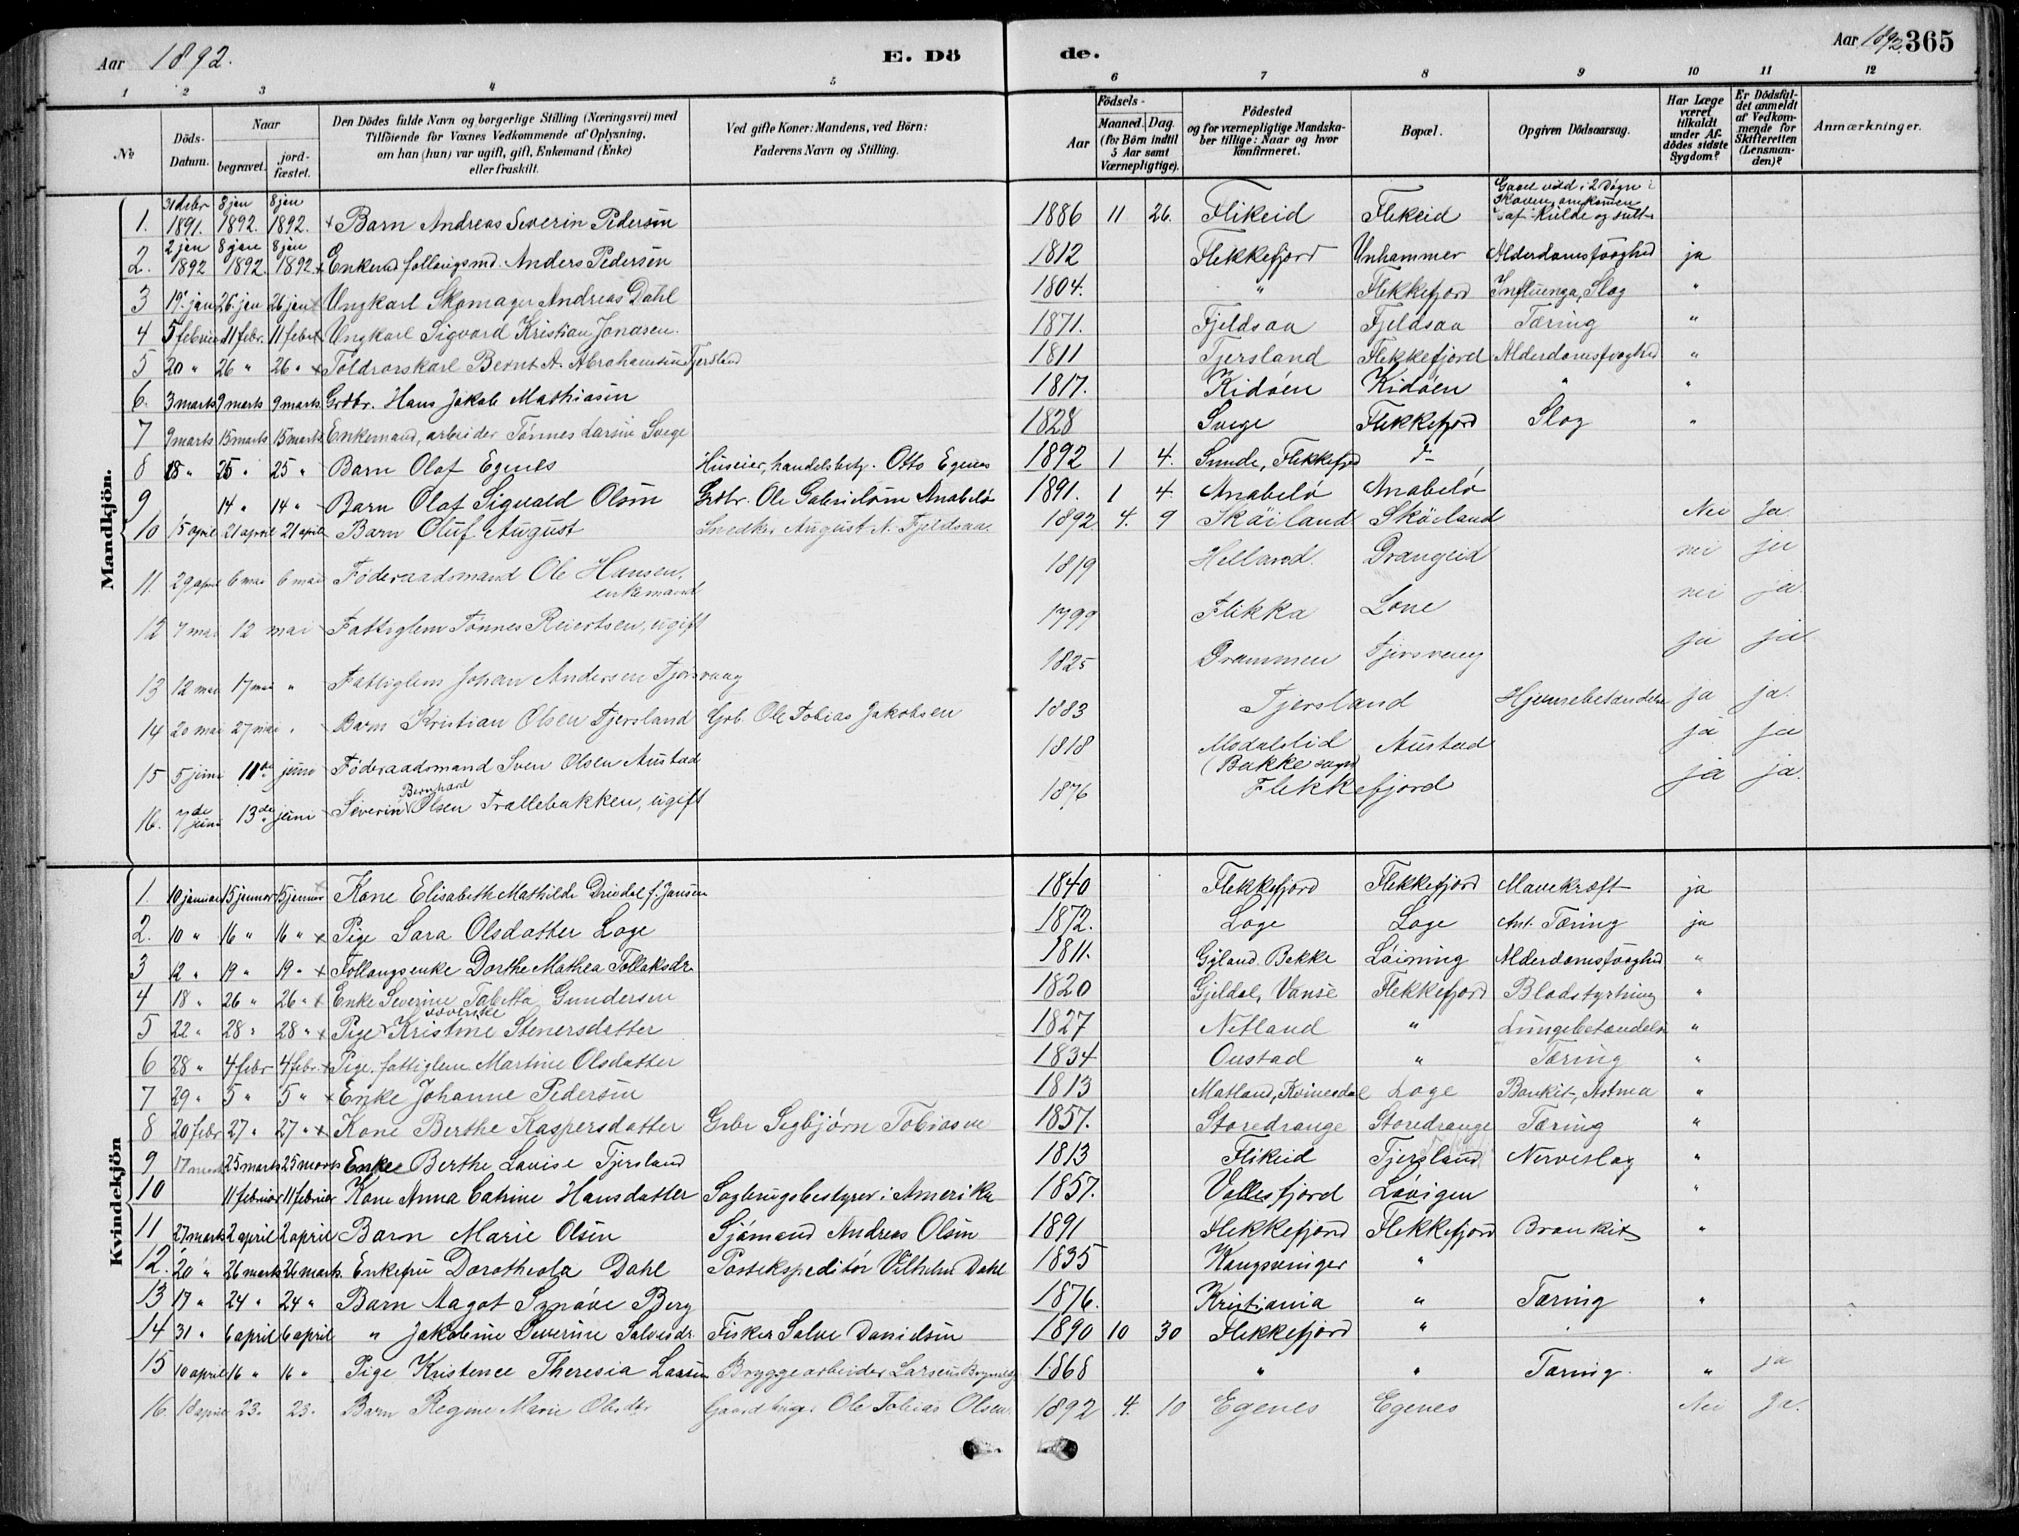 Aar 1892. E. Dö de. Aar 1892. 365
1 2 3 4 5 6 7 8 9 10 11 12
No. Döds-Datum. Naar begravet. jordfæstet. Den Dödes fulde Navn og borgerlige Stilling (Næringsvei) med Tilföiende for Voxnes Vedkommende af Oplysning, om han (hun) var ugift, gift, Enkemand (Enke) eller fraskilt. Ved gifte Koner: Mandens, ved Börn: Faderens Navn og Stilling. Födsels- Aar Maaned. Dag. (for Börn indtil 5 Aar samt Værnepligtige). Födested og for værnepligtige Mandskaber tillige: Naar og hvor konfirmeret. Bopæl. Opgiven Dödsaarsag. Har Læge været tilkaldt under Afdödes sidste Sygdom? Er Dödsfaldet anmeldt af Vedkommende for Skifteretten (Lensmanden)? Anmærkninger.
Mandkjön.
1. 31 dcbr 1891. 8 jan 1892. 8 jan 1892. Barn Andreas Severin Pedersen 1886 11 26. Flikeid Flekeid Gaaet vild i 2 Døgn i Skoven, omkommen af Kulde og sult
2. 2 jan 1892 8 jan 1892. 8 jan 1892 Enkemd follaugsmd. Anders Pedersen 1812 Flekkefjord Unhammer Alderdomssvaghed ja
3 19. jan 26. jan 26 jan Ungkarl Skomager Andreas Dahl 1804. " Flekkefjord Influenza, Slag "
4 5 februar 11 febr. 11 febr Ungkarl Sigvard Kristian Jonasen. 1871. Fjeldsaa Fjeldsaa Tæring "
5 20 " 26 " 26 " Toldrorskarl Bernt A. Abrahamsen Tjersland 1811 Tjersland Flekkefjord Alderdomssvaghed "
6. 3 marts 9 marts 9 marts Grdbr. Hans Jakob Mathiasen 1817. Kidøen Kidøen " "
7 9 marts 15 marts 15 marts Enkemand, arbeider Tønnes Larsen Svege 1828 Svege Flekkefjord Slag "
8 18 " 25 " 25 " Barn Olaf Egenes Huseier, handelsbetj. Otto Egenes 1892 1 4. Sunde, Flekkefjord
9 14 " 14 " Barn Olaf Sigvald Olsen Grdbr. Ole Gabrielsen Anabelø 1891. 1 4. Anabelø Anabelø
10 15 april 21 april 21 april Barn Oluf August Snedker August N. Fjeldsaae 1892 4. 9 Skøiland Skøiland Nei Ja.
11. 29 april 6 mai 6 mai Føderaadsmand Ole Hansen, enkemand 1819 Helland. Drangeid nei ja
12 7 mai 12 mai Fattiglem Tønnes Reiertsen, ugift 1799 Flikka Lone nei ja
13 12 mai 17 mai " Fattiglem Johan Andersen Tjørsvaag 1825 Drammen Tjørsvaag ja ja
14 20 mai 27 mai " Barn Kristian Olsen Tjersland Grb. Ole Tobias Jakobsen 1883 Tjersland Hjernebetændelse ja ja.
15 5 juni 11te juni Føderaadsmand Sven Olsen Austad 1818 Modalslid (Bakke sogn) Austad ja ja
16. 7de juni 13de juni Severin Bernhard Olsen Trallebakken, ugift 1876 Flekkefjord ja ja.
Kvindekjön
1. 10 januar 15 januar 15 januar Kone Elisabeth Mathilde Dreidal f. Jansen 1840 Flekkefjord Flekkefjord Mavekræft ja
2. 10 " 16 " 16 " Pige Sara Olsdatter Loge 1872. Loge Loge Ant. Tæring ja
3 12 " 19 " 19 " Follaugsenke Dorthe Mathea Tollaksdr. 1811. Gyland Bakke Løining Alderdomssvaghed "
4 18 " 26 " 26 " Enke Severine Tabitta Gundersen 1820 Gjeldal, Vanse Flekkefjord Blodstyrtning "
5 22 " 28 " 28 " Pige væverske Kristine Stenersdatter 1827 Netland " Lungebetændelse "
6 28 " 4 febr 4 febr. Pige. fattiglem Martine Olsdatter 1834 Oustad " Tæring "
7 29 " 5 " 5 " Enke Johanne Pedersen 1813 Matland, Kvinesdal Loge Bronkit, Astma "
8 20 febr 27 " 27 " Kone Berthe Kaspersdatter Grbr Sigbjørn Tobiasen 1857. Storedrange Storedrange Tæring "
9 17 marts 25 marts 25 marts Enke Berthe Lovise Tjersland 1813 Flikeid Tjersland Nerveslag "
10 11 februar 11 februar Kone Anna Catrine Hansdatter Sagbrugsbestyrer i Amerika 1857. Vollesfjord Løvigen "
11 27 marts 2 april 2 april Barn Marie Olsen Sjømand Andreas Olsen 1891 Flekkefjord Flekkefjord Bronkit "
12. 20 " 26 marts 26 marts. Enkefru Dorothea Dahl Postekspeditør Vilhelm Dahl 1835 Kongsvinger "
13 17 " 24 " 24 " Barn Aagot Synøve Berg 1876. Kristiania " Tæring "
14 31 " 6 april 6 april " Jakobine Severine Salvesdr. Fisker Salve Danielsen 1890 10 30 Flekkefjord "
15 10 april 16 " 16 " Pige Kristence Theresia Larsen Bryggearbeider Larsen 1868 " " Tæring. " ja
16. 18 april 23. 23. Barn Regine Marie Olsdtr Gaardbruger Ole Tobias Olsen. 1892 4. 10 Egenes Egenes Nei Ja.